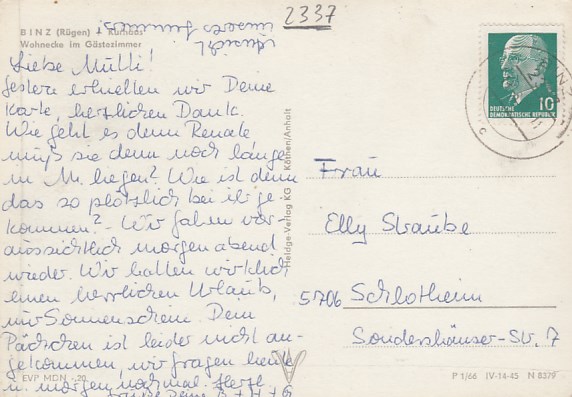 2337
BINZ (Rügen) Kurhaus
Wohnecke im Gästezimmer
Ansicht
unseres Zimmers!
Liebe Mutti!
gestern erhielten wir Deine
Karte, herzlichen Dank.
Wie geht es denn Renate
muß sie denn noch länger
in M. liegen? Wie ist denn
das so plötzlich bei ihr ge-
kommen? - Wir fahren vor-
aussichtlich morgen abend
wieder. Wir hatten wirklich
einen herrlichen Urlaub,
nur Sonnenschein. Dein
Päckchen ist leider nicht an-
gekommen, wir fragen heute
u. morgen nochmal. Herzl.
Deine
EVP MDN -,20
Heldge-Verlag KG Köthen/Anhalt
DEUTSCHE
DEMOKRATISCHE REPUBLIK
10
BINZ
Frau
Elly Straube
5706 Schlotheim
Sondershäuser-Str. 7
P 1/66 IV-14-45 N 8379